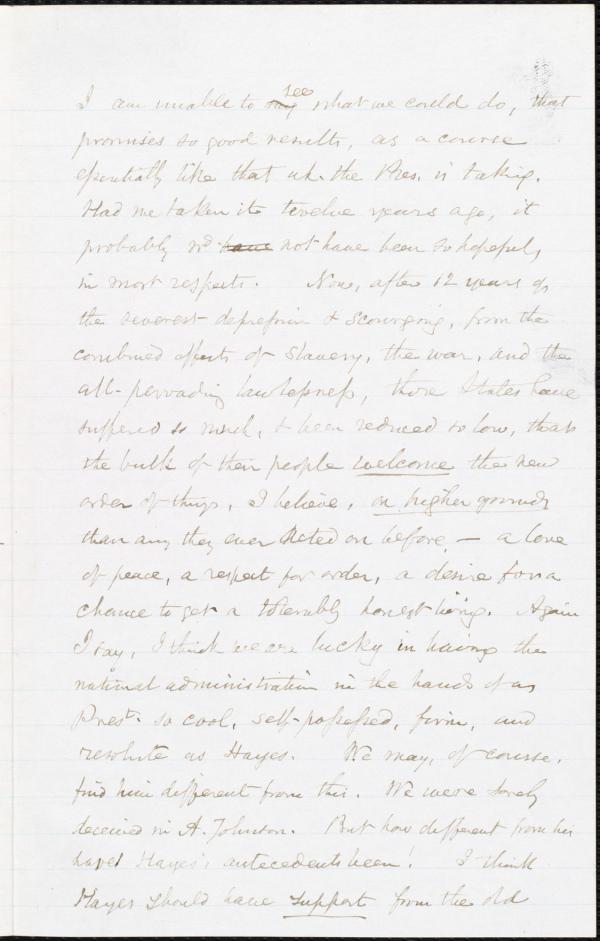 I am unable to see what we could do, that
promises so good results, as a course
essentially like that wh. the Pres. is taking.
Had we taken it twelve years ago, it
probably wd have not have been so hopeful,
in most respects. Now, after 12 years of
the severest depression & scourging, from the
combined effects of slavery, the war, and the
all-pervading lawlessness, those States have
suffered so much, & been reduced so low, that
the bulk of their people welcome the new
order of things, I believe, on higher grounds
than any they ever acted on before, — a love
of peace, a respect for order, a desire for a
chance to get a tolerably honest living. Again
I say, I think we are lucky in having the
national administration in the hands of a
Prest. so cool, self-possessed, firm, and
resolute as Hayes. We may, of course,
find him different from this. We were sorely
deceived in A. Johnson. But how different from his
have Hayes's antecedents been! I think
Hayes should have support from the old